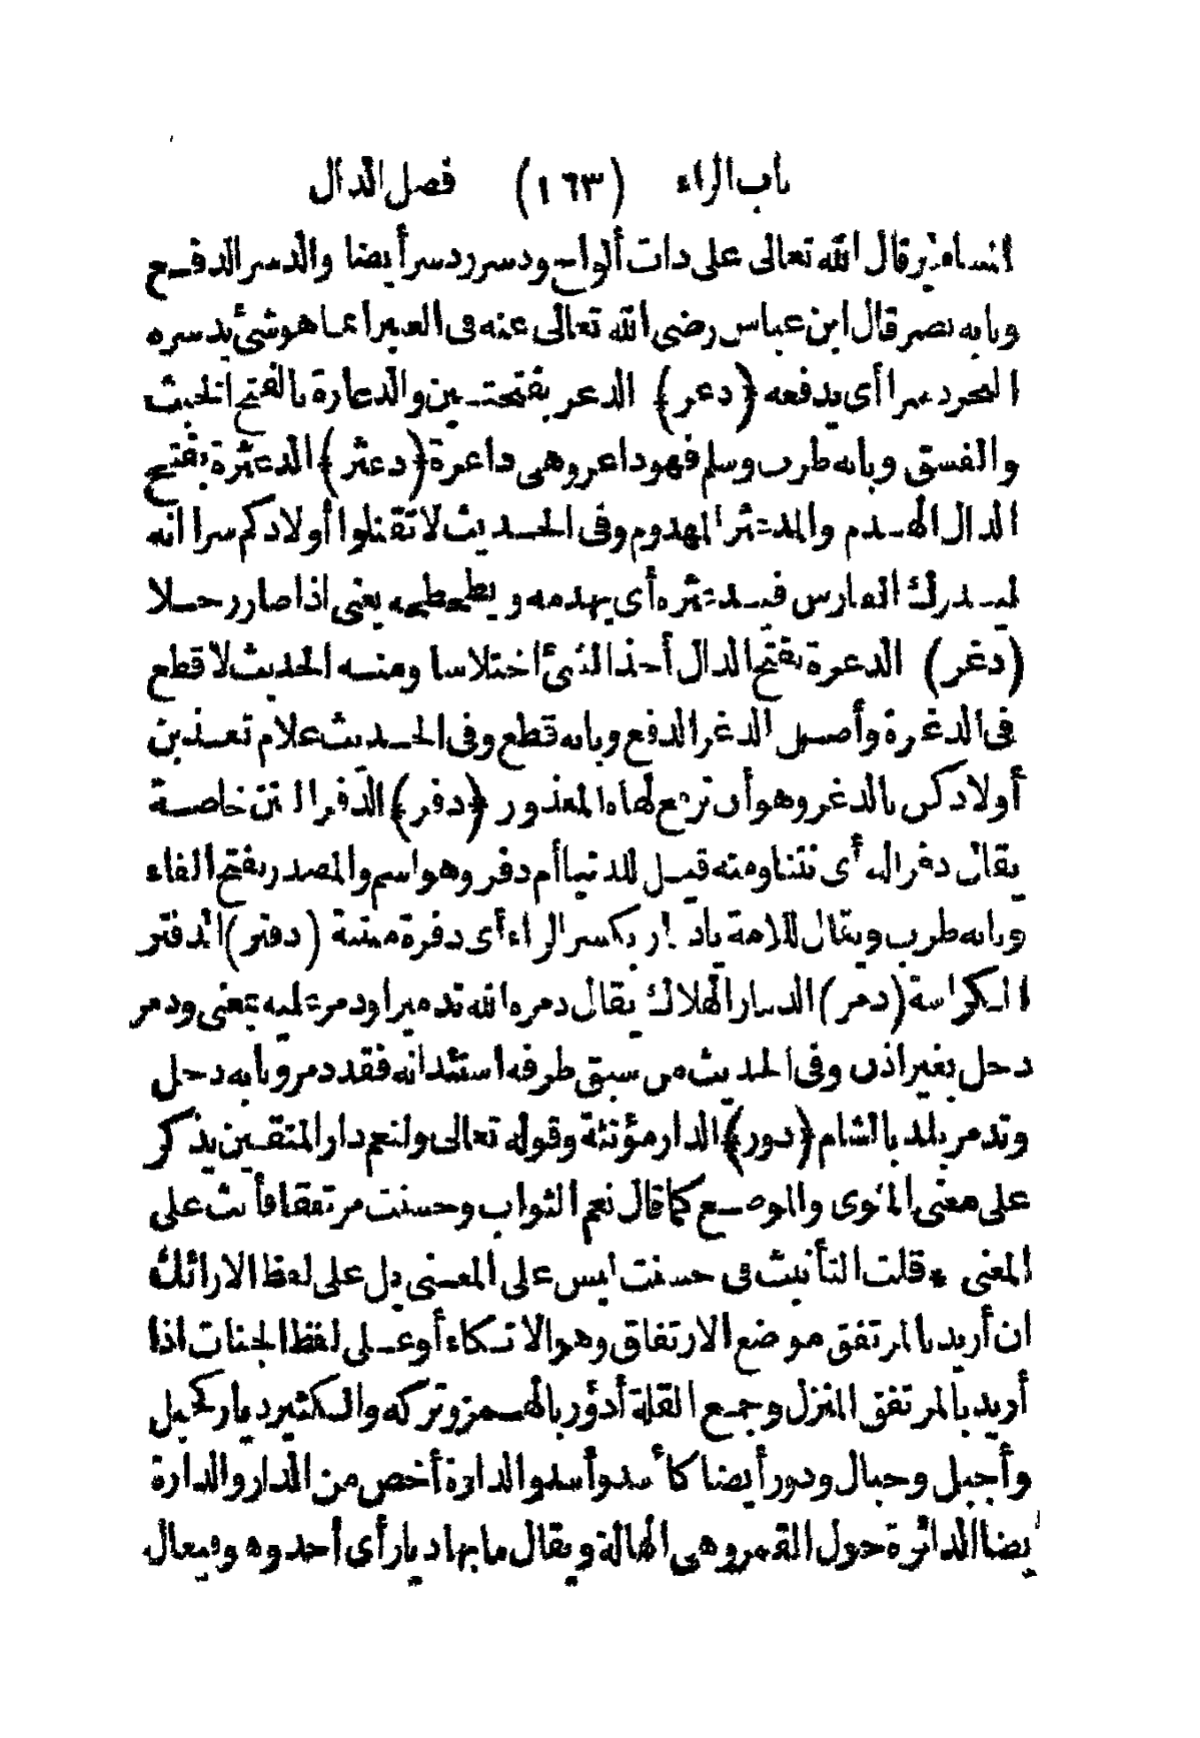 باب الراء (١٦٣) فصل الدال
المسامير قال الله تعالى على ذات ألواح ودسر ودسر أيضا والدسر الدفع
وبابه نصر قال ابن عباس رضى الله تعالى عنه فى العنبر انما هو شئ يدسره
البحر دسرا أى يدفعه (دعر) الدعر بفتحتين والدعارة بالفتح الخبث
والفسق وبابه طرب وسلم فهو داعر وهى داعرة (دعثر) الدعثرة بفتح
الدال الهدم والمدعثر المهدوم وفى الحديث لا تقتلوا أولادكم سرا انه
ليدرك الفارس فيدعثره أى يهدمه ويطحطحه يعنى اذا صار رجلا
(دغر) الدغرة بفتح الدال أخذ الشئ اختلاسا ومنه الحديث لا قطع
فى الدغرة وأصل الدغر الدفع وبابه قطع وفى الحديث علام تعذبن
أولادكن بالدغر وهو أن ترفع لهاة المعذور (دفر) الدفر النتن خاصة
يقال دفرا له أى نتنا ومنه قيل للدنيا أم دفر وهو اسم والمصدر بفتح الفاء
وبابه طرب ويقال للامة يا دفار بكسر الراء أى دفرة منتنة (دفتر) الدفتر
الكراسة (دمر) الدمار الهلاك يقال دمره الله تدميرا ودمر عليه بمعنى ودمر
دخل بغير اذن وفى الحديث من سبق طرفه استئذانه فقد دمر وبابه دخل
وتدمر بلد بالشام (دور) الدار مؤنثة وقوله تعالى ولنعم دار المتقين يذكر
على معنى المثوى والموضع كما قال نعم الثواب وحسنت مرتفقا فأنث على
المعنى * قلت التأنيث فى حسنت ليس على المعنى بل على لفظ الارائك
ان أريد بالمرتفق موضع الارتفاق وهو الاتكاء أو على لفظ الجنات اذا
أريد بالمرتفق المنزل وجمع القلة أدؤر بالهمز وتركه والكثير ديار كجبل
وأجبل وجبال ودور أيضا كأسد وأسد والدارة أخص من الدار والدارة
أيضا الدائرة حول القمر وهى الهالة ويقال ما بها ديار أى أحد وهو فيعال